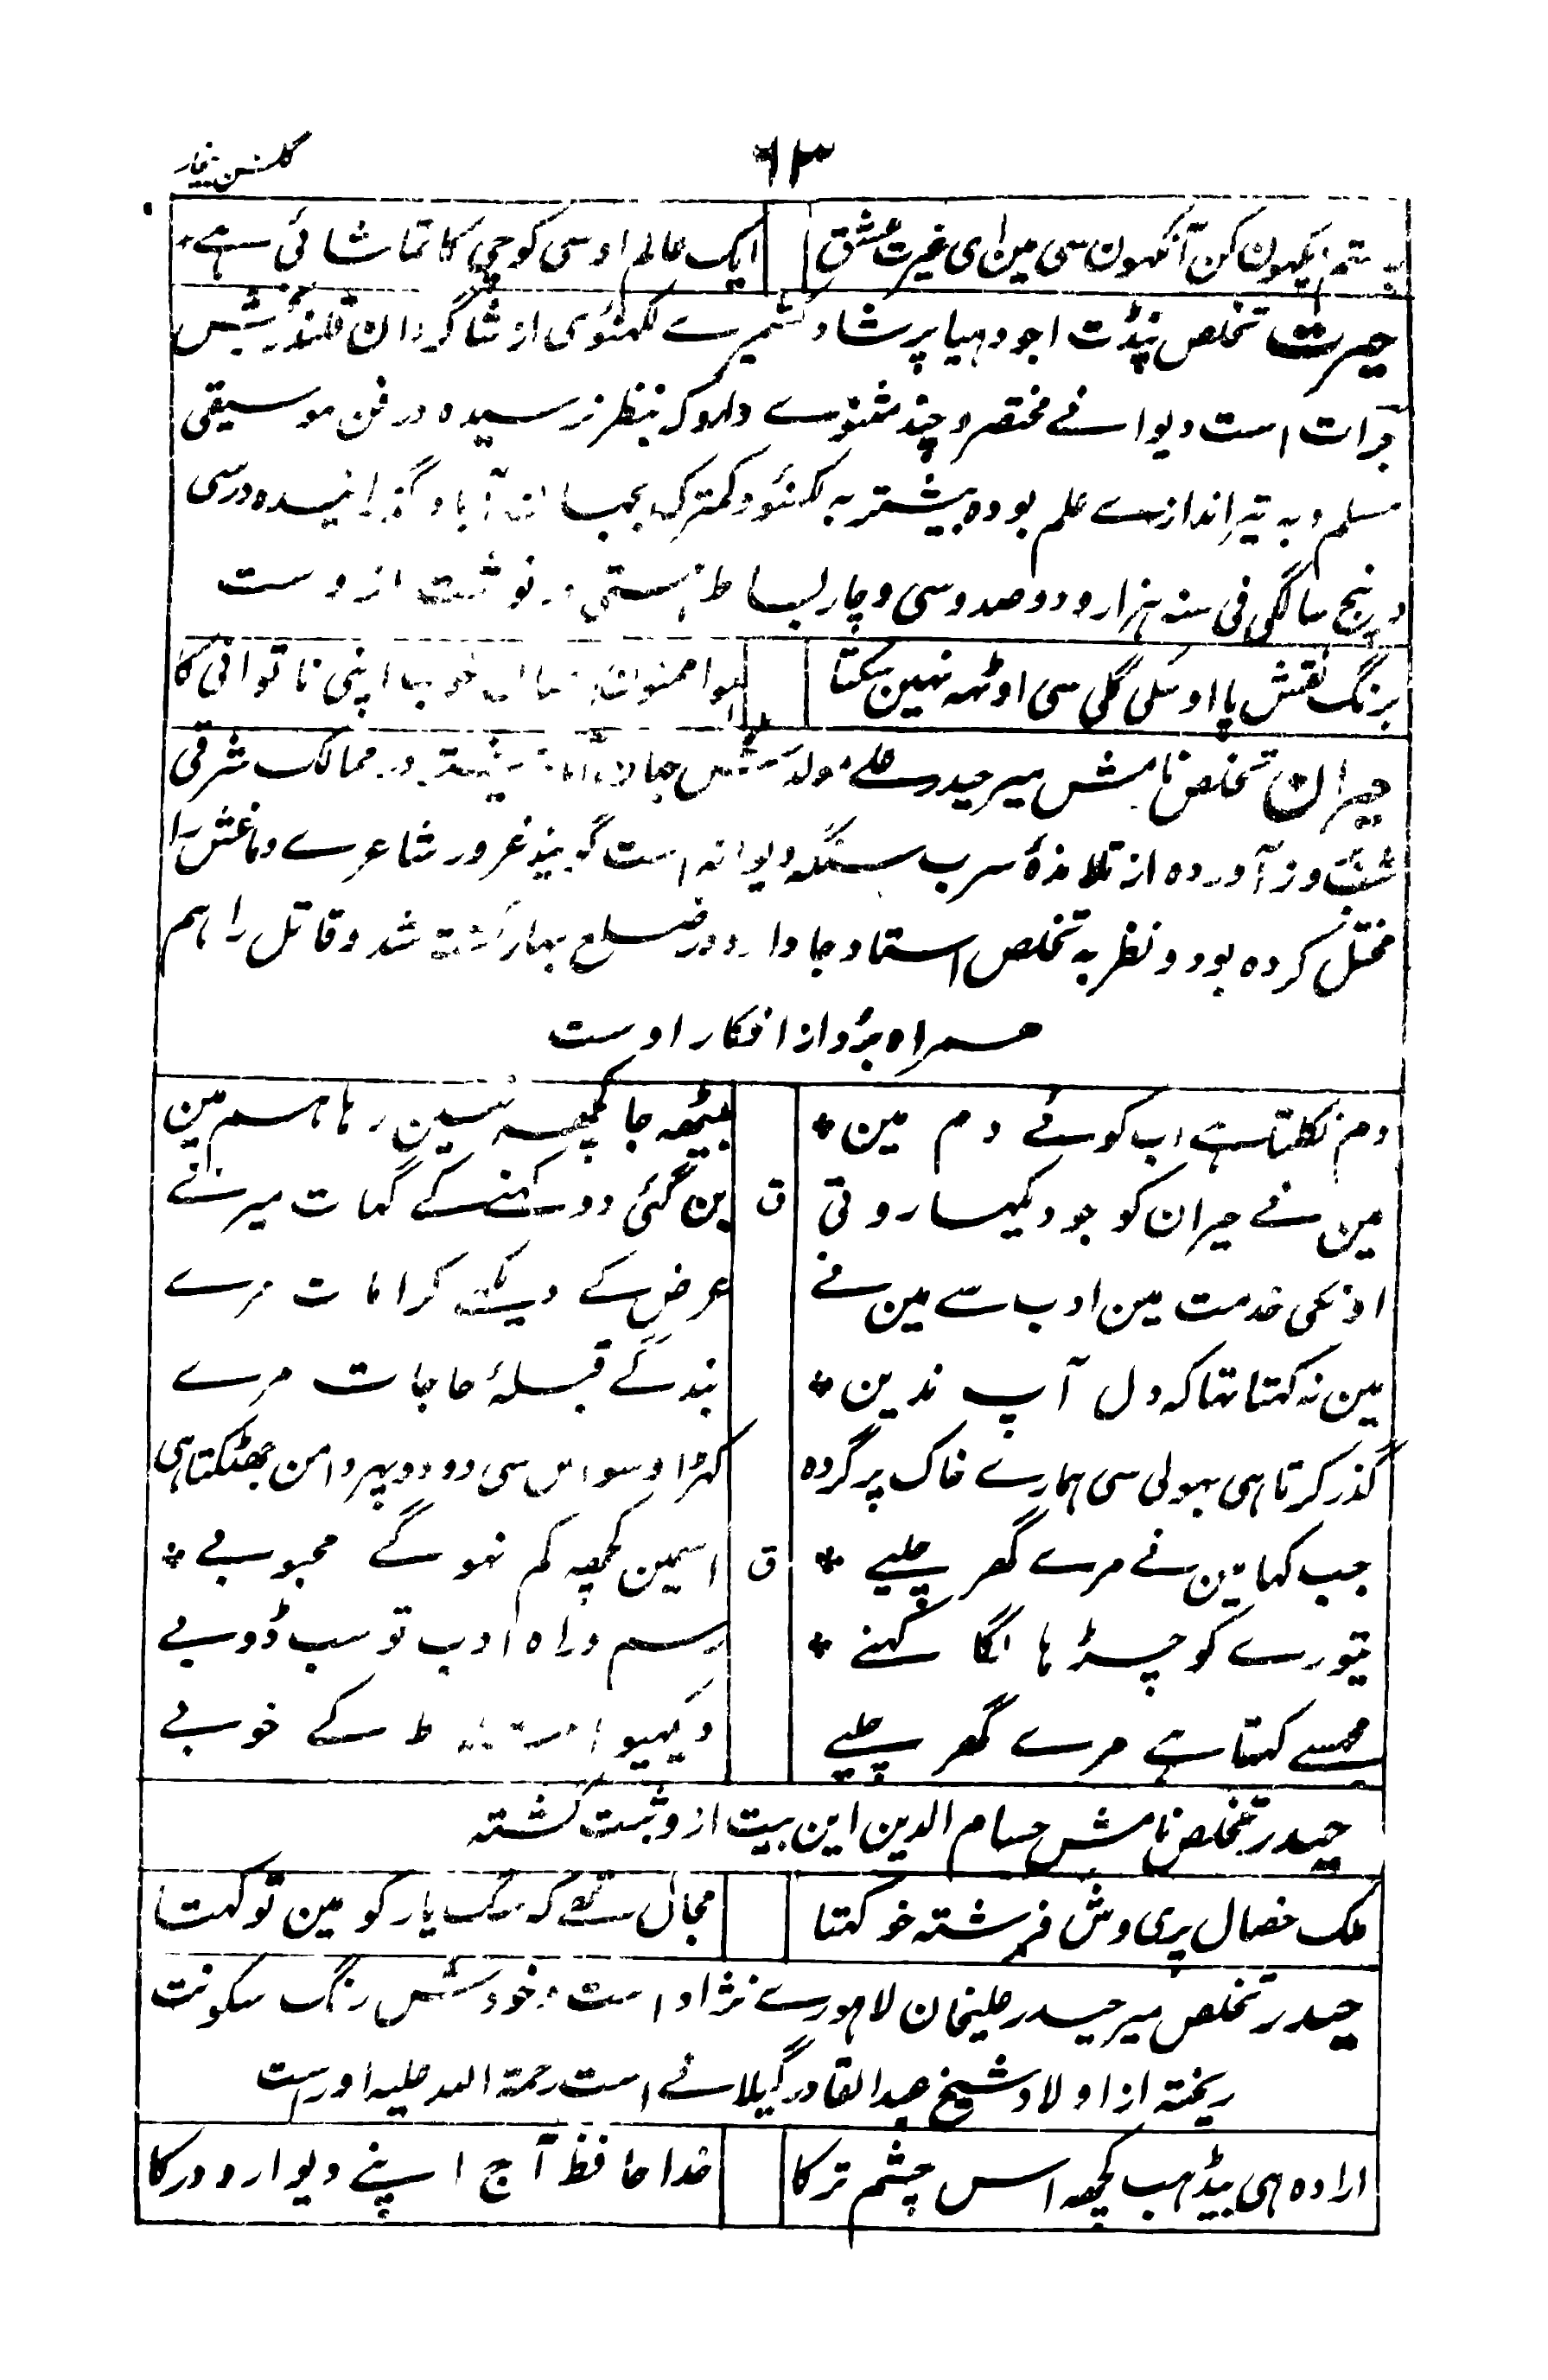 ٦٣
گلشن بیخار
یہ ستم دیکہون کن آنکہون سی مین ای غیرت عشق ایک عالم اوسی کوچی کا تماشائی ہے
حیرت تخلص پنڈت اجودہیا پرشاد کشمیرے لکہنؤی از شاگردان قلندر بخش
جرات است دیوانے مختصر و چند مثنوے دارد کہ بنظر نرسیدہ در فن موسیقی
مسلم و بہ تیر اندازے علم بودہ بیشتر بہ لکہنؤ و کمترک بجہان آباد گذرانیدہ در سی
و پنج سالگی فی سنہ ہزار و دو صد و سی و چار بساط ہستی در نوشت از وست
برنگ نقش پا اوسکی گلی سی اوٹہہ نہین سکتا ہوا ممنون خوب اپنی ناتوانی کا
حیران تخلص نامش میر حیدر علے مولدش جہان آباد در ممالک شرقی
آوردہ از تلامذۂ سرب سنگہ دیوانہ است گویند غرور شاعرے دماغش را
مختل کردہ بود و نظر بہ تخلص استاد جا دارد در ضلع بہار کشتہ شد و قاتل را ہم
ہمراہ برد از افکار اوست
دم نکلتا ہے اب کوئے دم مین بیٹہہ جا کچہہ نہین رہا ہم مین
مین نے حیران کو جو دیکہا روتی ق بن گئی دو کہنے کے گہات میرے
اونکی خدمت مین ادب سے مین نے عرض کے دیکہے کرامات مرے
مین نہ کہتا تہا کہ دل آپ ندین بندگے قبلۂ حاجات مرے
گذر کرتا ہی بہولی سی ہمارے خاک پر گر وہ کہڑا وسواس سی دو دو پہر دامن جھٹکتا ہی
جب کہا مین نے مرے گھر چلیے ق اسمین کچھہ کم نہوگے محبوبے
تیورے کو چڑہا لگا کہنے رسم و راہ ادب تو سب ڈوبے
مجسے کہتا ہے مرے گھر چلیے دیکہیو کے خوبے
حیدر تخلص نامش حسام الدین این بیت ازو ثبت گشتہ
ملک خصال پری وش فرشتہ خو کہتا مجال تھے کہ سگ یار کو مین تو کہتا
حیدر تخلص میر حیدر علیخان لاہورے نژاد است و خودش رنگ سکونت
ریختہ از اولاد شیخ عبدالقادر گیلانے است رحمۃ اللہ علیہ اوراست
ارادہ ہی بیڈہب کچھہ اس چشم تر کا خدا حافظ آج اپنے دیوار و در کا